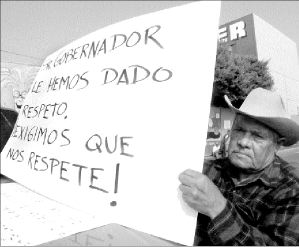 GOBERNADOR
LE HEMOS DADO
RESPETO,
EXIGIMOS QUE
NOS RESPETE!
ER